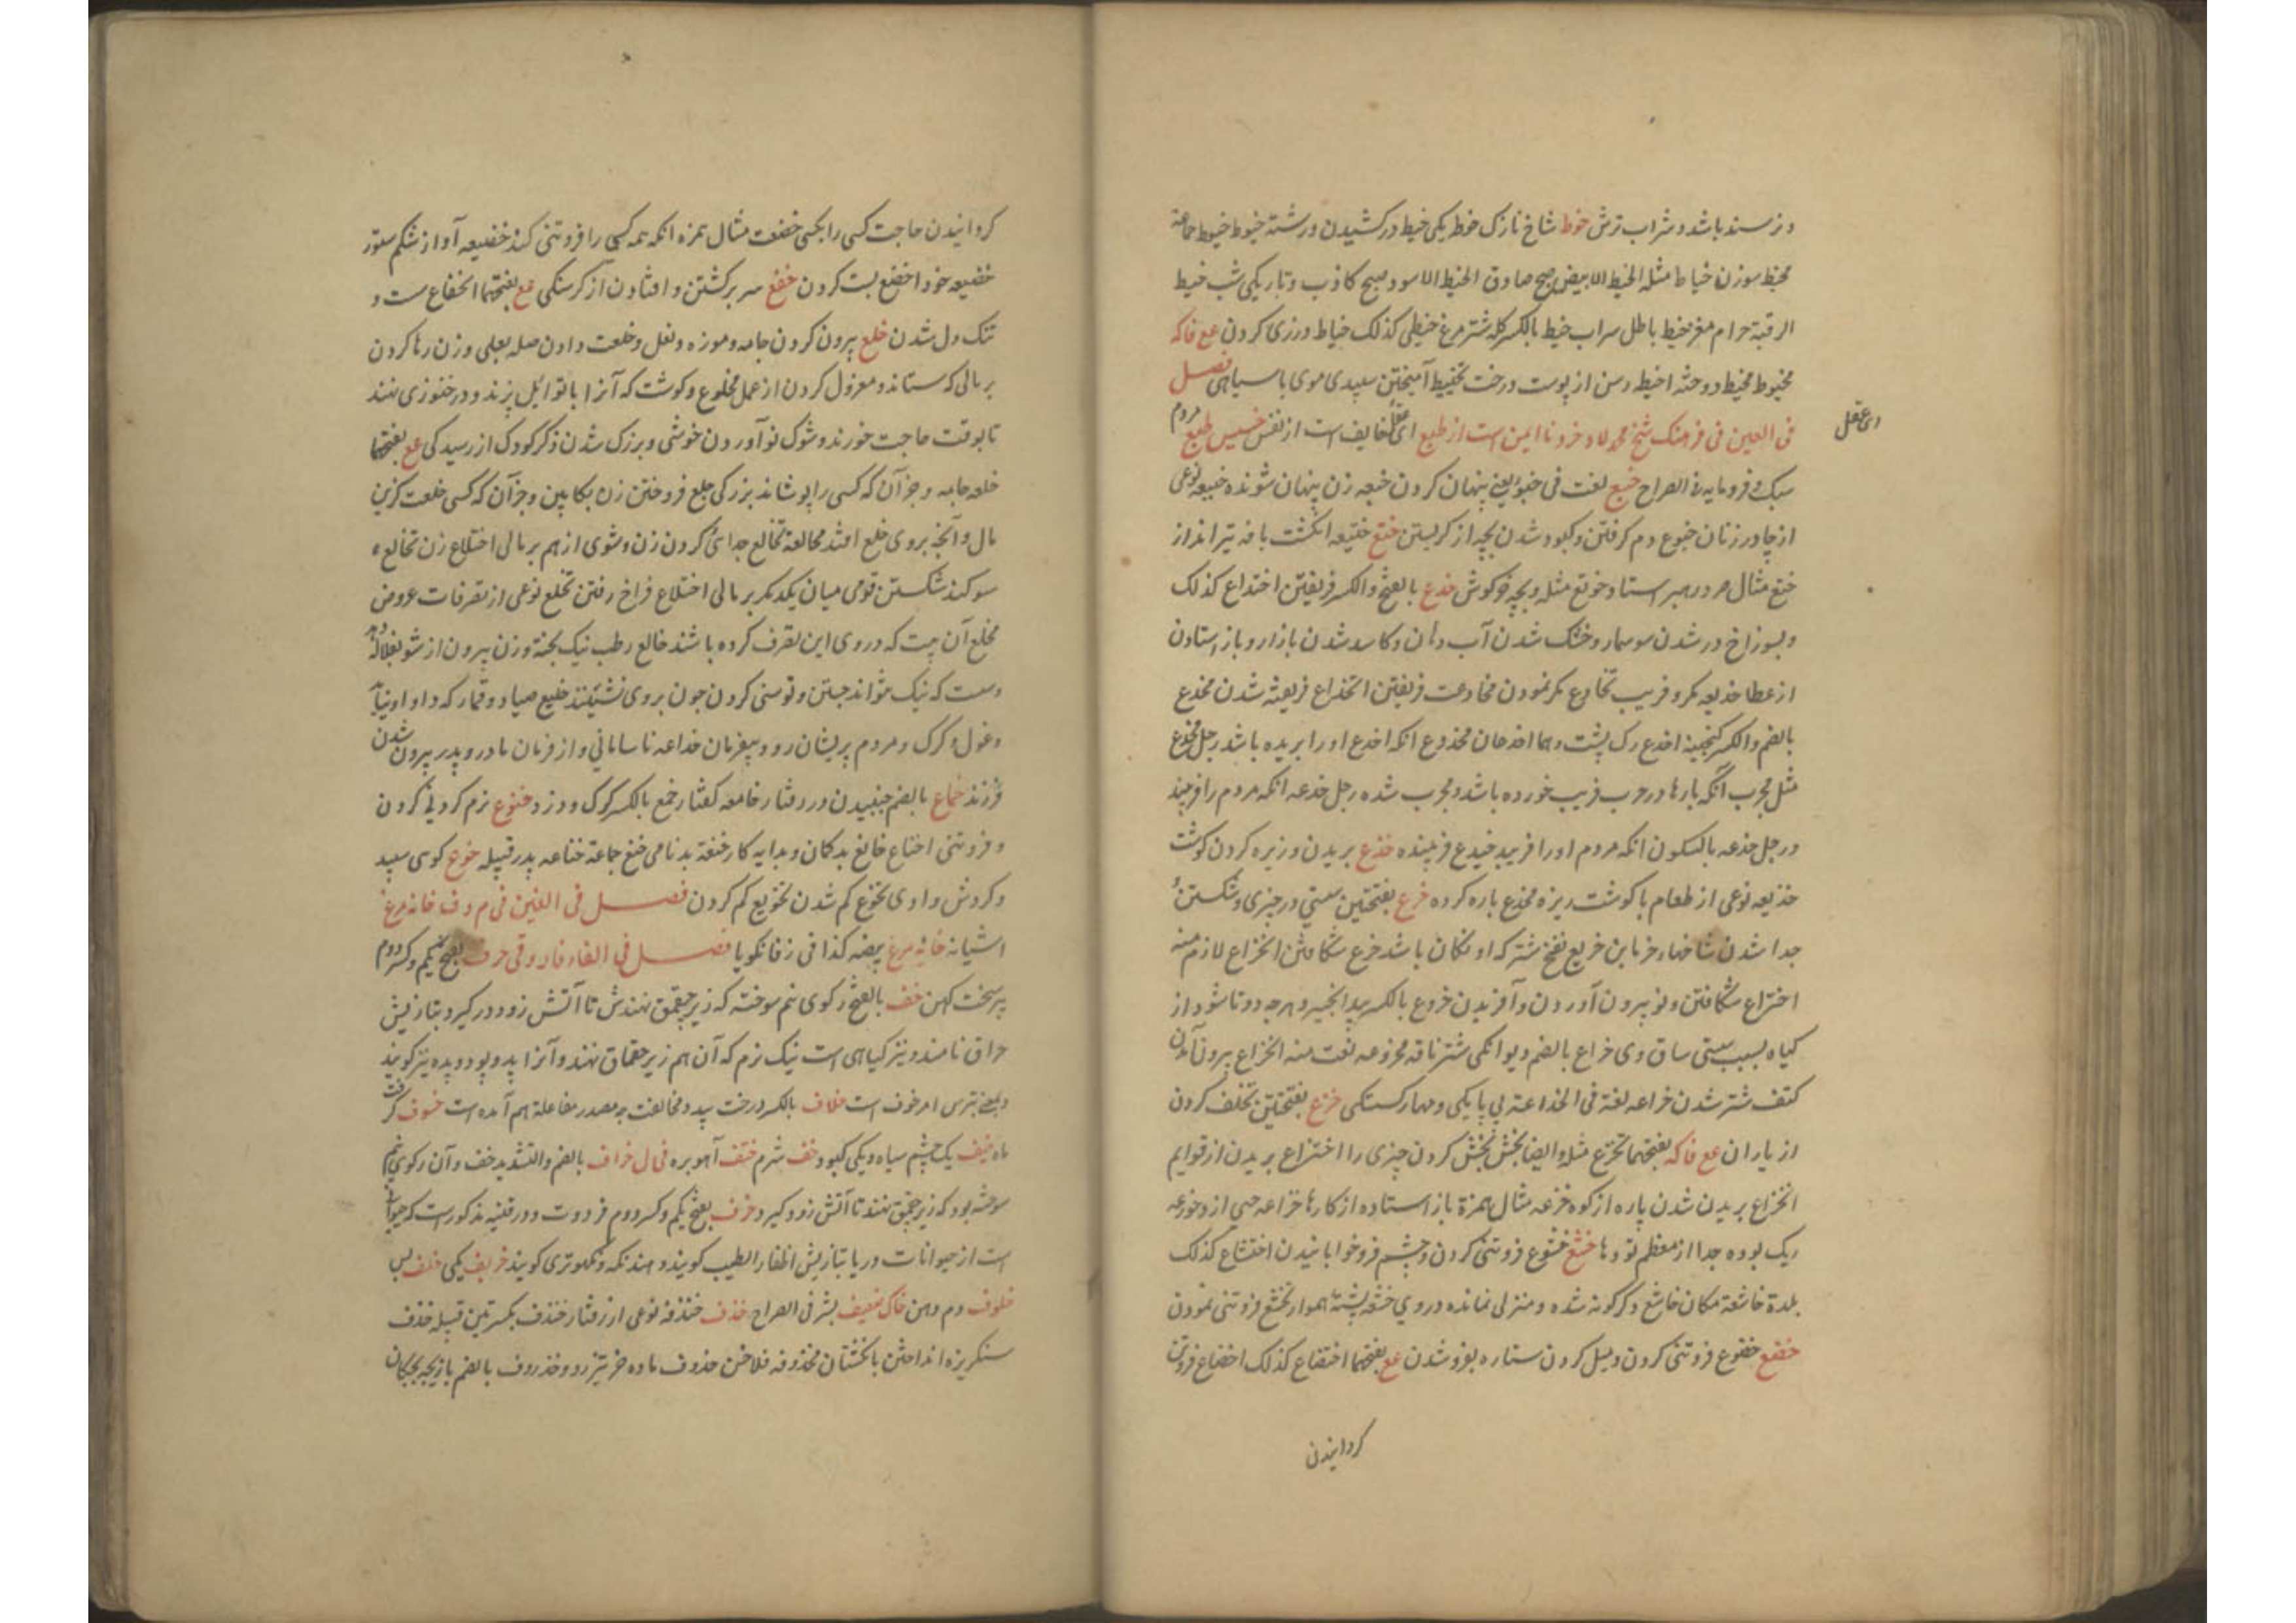 و نرسند باشد و شراب ترش خوط شاخ نازک خوط یکی خیط درکشیدن و رشته خیوط خیوط جماعة
مخیط سوزن خیاط مثله الخیط الابیض صبح صادق الخیط الاسود صبح کاذب و تاریکی شب خیط
الرقبة حرام مغز خیط باطل سراب خیط بالکسر کله شترمرغ خیطی کذلک خیاط درزی کردن مع فاکه
مخیوط مخیط دوخته اخیط رسن از پوست درخت تخییط آمیختن سپیدی موی با سیاهی فصل
فی العین فی فرهنک شیخ محمد لاد خرد نا ایمن است از طبع ای عقل خایف است از نفس خسیس طبع مردم
ای عقل
سبک و فرومایه فی الصراح خبع لغت فی خبؤ یعنی پنهان کردن خبعه زن پنهان شونده خبیعه نوعی
از چادر زنان خبوع دم کرفتن و کبود شدن بچه از کریستن ختع ختیعه انکشت بافه تیرانداز
ختع مثال صرد رهبر استاد خوتع مثله و بچه خرکوش خدع بالفتح والکسر فریفتن اختداع کذلک
و بسوراخ در شدن سوسمار و خشک شدن آب دهان و کاسد شدن بازار و باز استادن
از عطا خدیعه مکر و فریب تخادع مکر نمودن مخادعت فریفتن انخداع فریفته شدن مخدع
بالضم والکسر کنجینه اخدع رک پشت و هما اخدعان مخدوع انکه اخدع او را بریده باشد رجل مخدع
مثل مجرب آنکه بارها در حرب فریب خورده باشد و مجرب شده رجل خدعه انکه مردم را فریبد
و رجل خدعه بالسکون انکه مردم او را فریبد خیدع فریبنده خذع بریدن و زیره کردن کوشت
خذیعه نوعی از طعام با کوشت ریزه مخذع باره کرده خرع بفتحتین سستی در چیزی و شکستن و
جدا شدن شاخها خریع تفخ شتر که اونکان باشد خرع شکافتن انخراع لازم منه
اختراع شکافتن و نو بیرون آوردن و آفریدن خروع بالکسر بیدانجیر و هرچه دوتا شود از
کیاه بسبب سستی ساق وی خراع بالضم دیوانکی شتر ناقه مخروعه نعت منه انخراع بیرون آمدن
کتف شتر شدن خراعه لغة فی الخداعة بی باکی و مهارکستکی خزع بفتحتین تخلف کردن
از یاران مع فاکه بفتحهما تخزع مثله و ایضا بخش بخش کردن چیزی را اختزاع بریدن از قوایم
انخزاع بریدن شدن پاره از کوه خزعه مثال همزة باز استاده از کارها خزاعه حی از دخوزعه
ریک بوده جدا از معظم تودها خشع خشوع فروتنی کردن و چشم فروخوابانیدن اختشاع کذلک
بلدة خاشعة مکان خاشع دکرکونه شده و منزلی نمانده در وی خشعه پشته هموار تخشع فروتنی نمودن
خضع خضوع فروتنی کردن و میل کردن ستاره بفرو شدن مع بفتحهما اختضاع کذلک اخضاع فروتن
کردانیدن
کردانیدن حاجت کسی را بکسی خضعت مثال همزه انکه همه کسی را فروتنی کند خضیعه آواز شکم ستور
خضیعه خود اخضع پست کردن خفع سر برکشتن و افتادن از کرسنکی مع بفتحهما انخفاع سست و
تنک دل شدن خلع بیرون کردن جامه و موزه و نعل و خلعت دادن صله بعلی و زن رها کردن
بر مالی که ستاند و معزول کردن از عمل مخلوع و کوشت که آنرا با توابل پزند و در خنوزی نهند
تا بوقت حاجت خورند و شوک نو آوردن خوشی و بزرک شدن ذکر کودک از رسیدکی مع بفتحهما
خلعه جامه و جز آن که کسی را پوشاند بزرکی خلع فروختن زن بکابین و جز آن که کسی خلعت کزین
مال و آنچه بروی خلع افتد مخالعة تخالع جدائی کردن زن و شوی از هم بر مالی اختلاع زن تخالع ه
سوکند شکستن قومی میان یکدیکر بر مالی اختلاع فراخ رفتن تخلع نوعی از تصرفات عروض
مخلع آن بیت که در وی این تصرف کرده باشند خالع رطب نیک پخته و زن بیرون از شو
وست که نیک نتواند جستن و توسنی کردن چون بروی نشینند خلیع صیاد و قمار که داو او نیاید
و غول و کرک و مردم پریشان رو و بیفرمان خداعه ناسامانی و از فرمان مادر و پدر بیرون شدن
فرزند خماع بالضم جنبیدن در رفتار خامعه کفتار خمع بالکسر کرک و دزد خنوع نرم کردنی کردن
و فروتنی اخناع خانع بدکمان و بدایه کار خنعة بدنامی خنع جماعة خناعه پدر قبیله خوع کوی سپید
و کردش وادی تخوع کم شدن تخویع کم کردن فصل فی الغین فی م و ف خانه مرغ
اشیانه خایه مرغ بیضه کذا فی زفانکویا فصل فی الفاء فارو قی خرف بفتح یکم و کسر دوم
پیر سخت کهن خف بالفتح رکوی نیم سوخته که زیر چقمق نهندش تا آتش زود در کیرد بتازیش
حراق نامند و نیز کیاهی است نیک نرم که آن هم زیر چقماق نهند و آنرا پد و پود و پده نیز کویند
و بمعنی بترس امر خوف است خلاف بالکسر درخت بید و مخالفت به مصدر مفاعلة هم آمده است خسوف کرفت
ماه خیف یک چشم سیاه و یکی کبود خف شرم خشف آهو بره فی ل خراف بالضم والتشدید خف و آن رکوی نیم
سوخته بود که زیر چقمق نهند تا آتش زود کیرد خرف بفتح یکم و کسر دوم فردوت و در قنیه مذکورست که حیوانی
است از حیوانات دریا بتازیش اظفار الطیب کویند و هند نکه و نکهوتری کویند خریف یکی خلف پس
خلوف دم دهن خاک ضعیف بشر فی الصراح خذف خنذفه نوعی از رفتار خنذف بکسرتین قبیله خذف
سنکریزه انداختن با نکشتان مخذوفه فلاخن خذوف ماده خر تیزرو و خذروف بالضم بازیچه بچکان